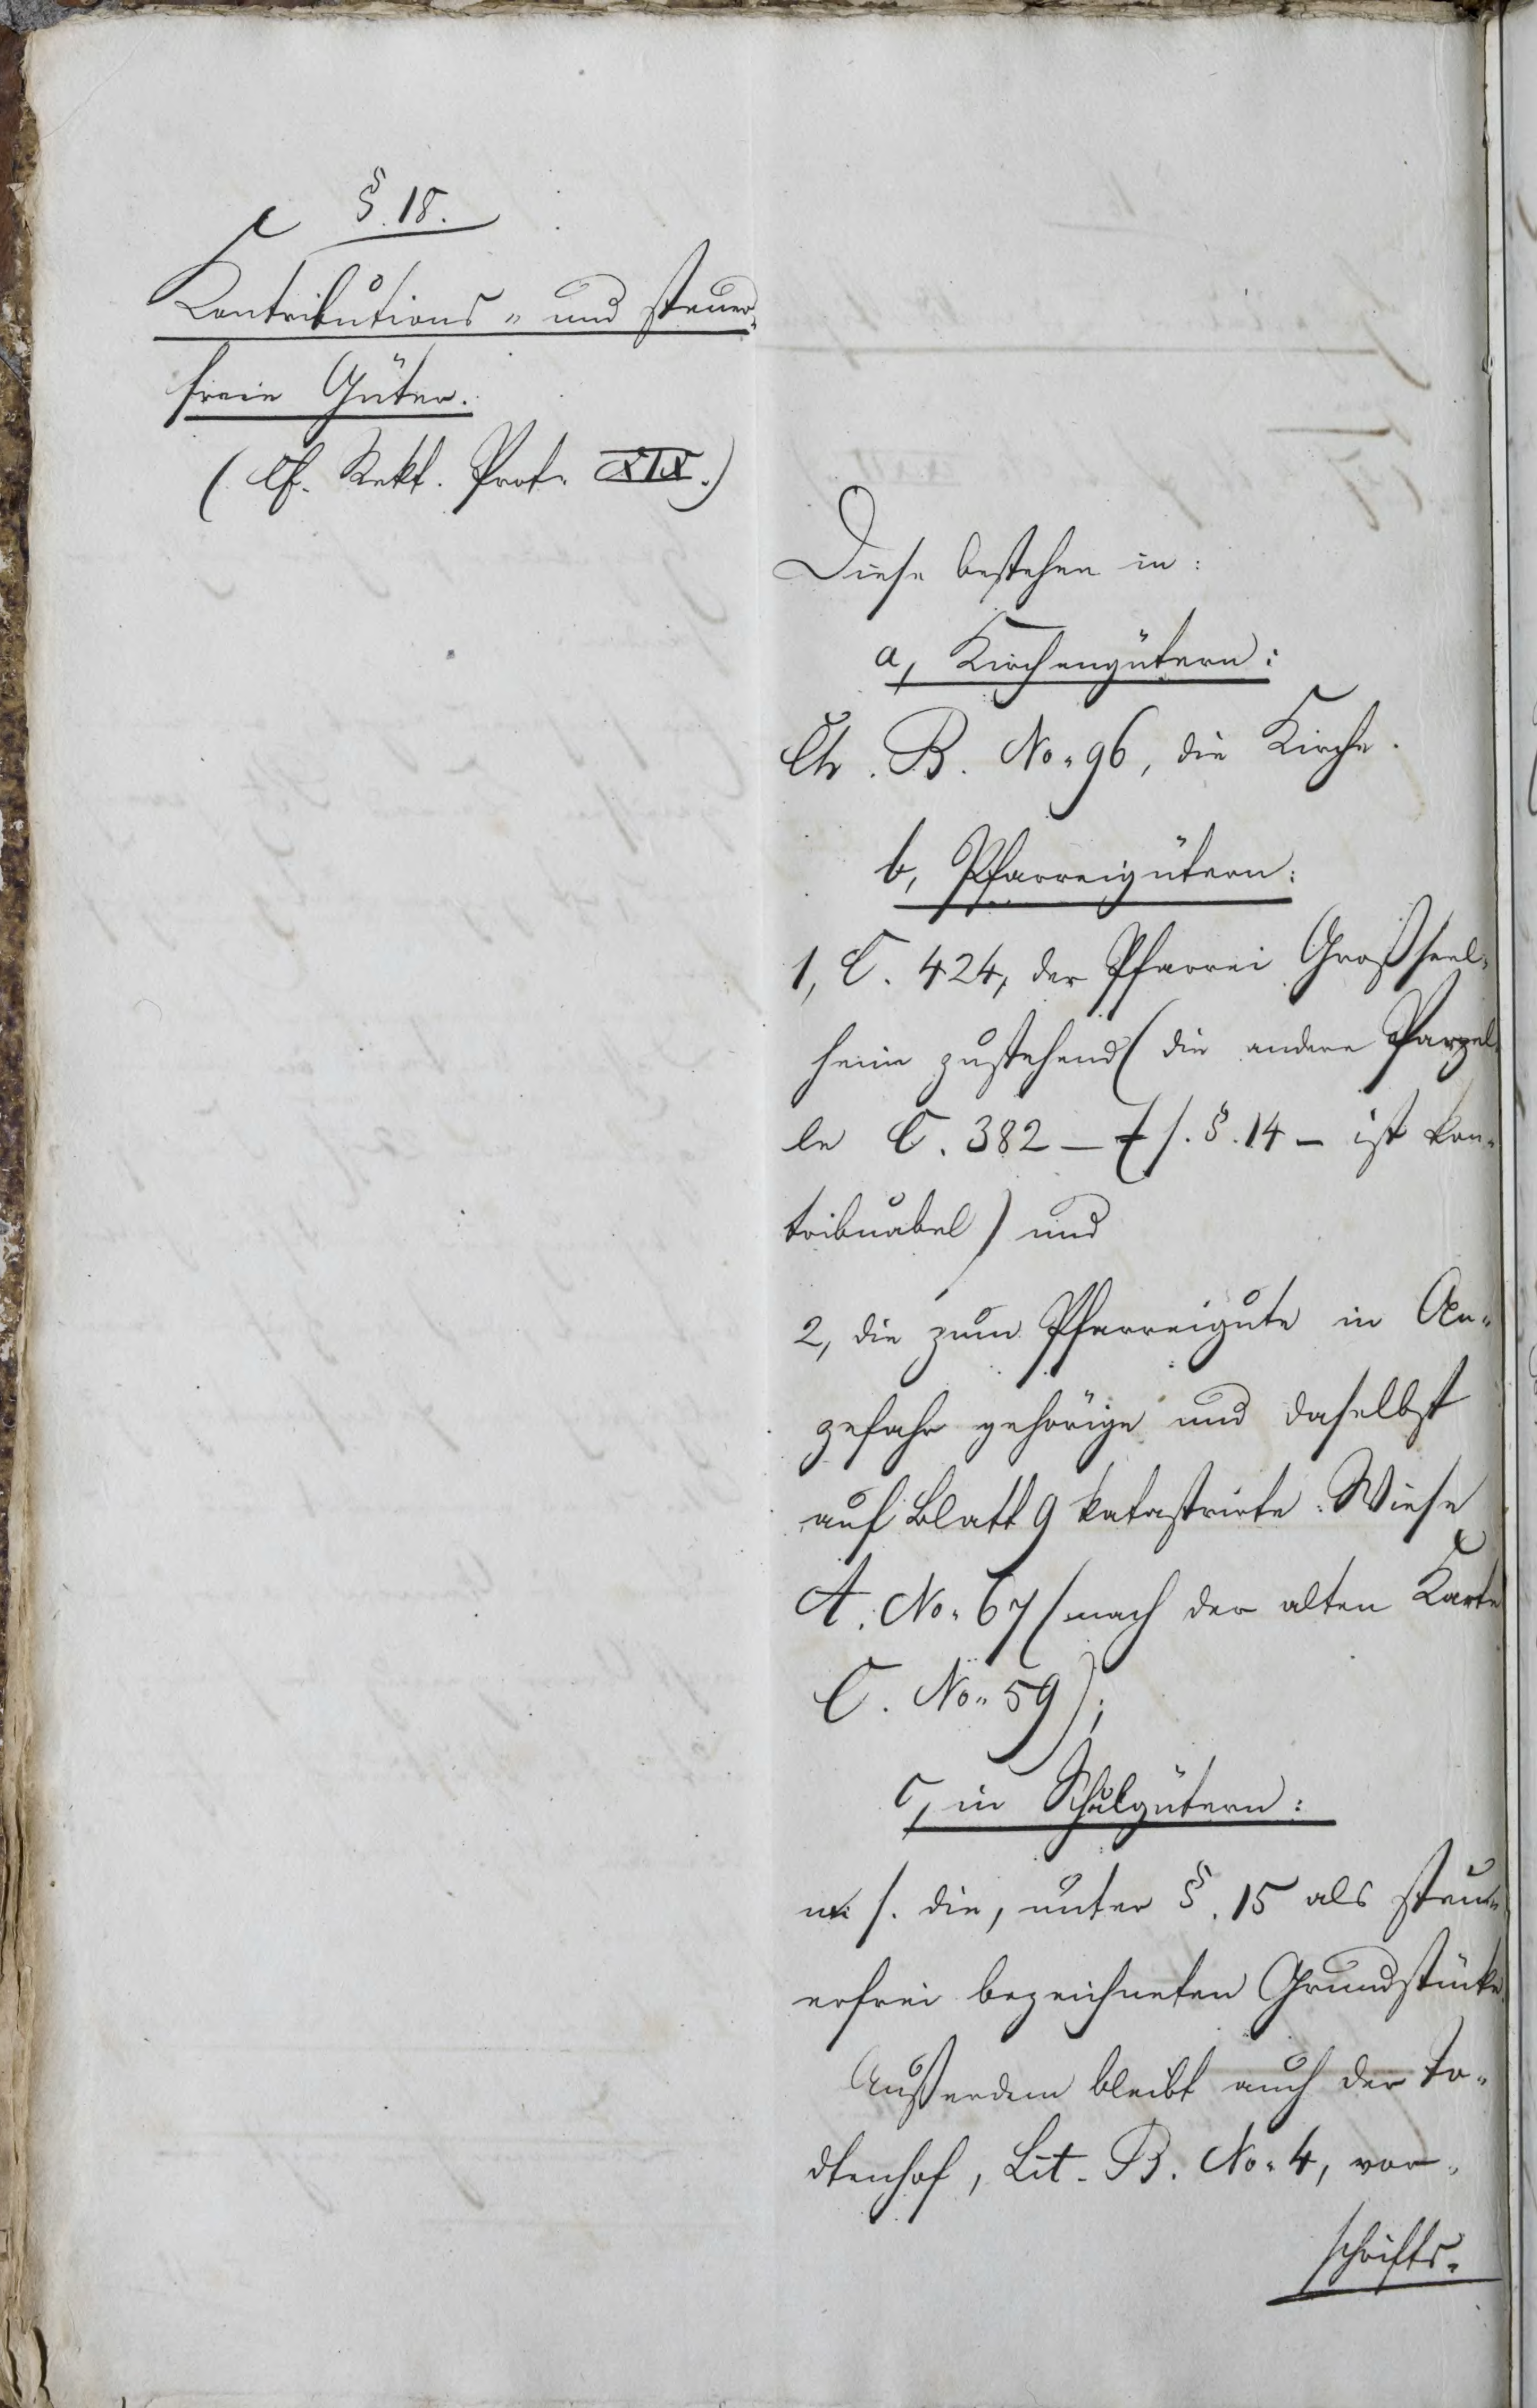 §. 18.
Contributions- und steuer-
freie Güter.
(Cf. Rekt. Prot. XIX.)
Diese bestehen in:
a, Kirchengütern:
Ch. B. No. 96, die Kirche.
b, Pfarreigütern:
1, C. 424, der Pfarrei Großseel-
heim zustehend (die andere Parzel-
le C. 382 – s. §. 14 – ist kon-
tribuabel) und
2, die zum Pfarreigute in An-
zefahr gehörige und daselbst
auf Blatt 9 katastrirte Wiese
A. No. 67 (nach der alten Karte
C. No. 59);
c, in Schulgütern:
m. s. die, unter §. 15 als steu-
erfrei bezeichneten Grundstücke.
Außerdem bleibt auch der To-
dtenhof, Lit. B. No. 4, vor-
schrifts-